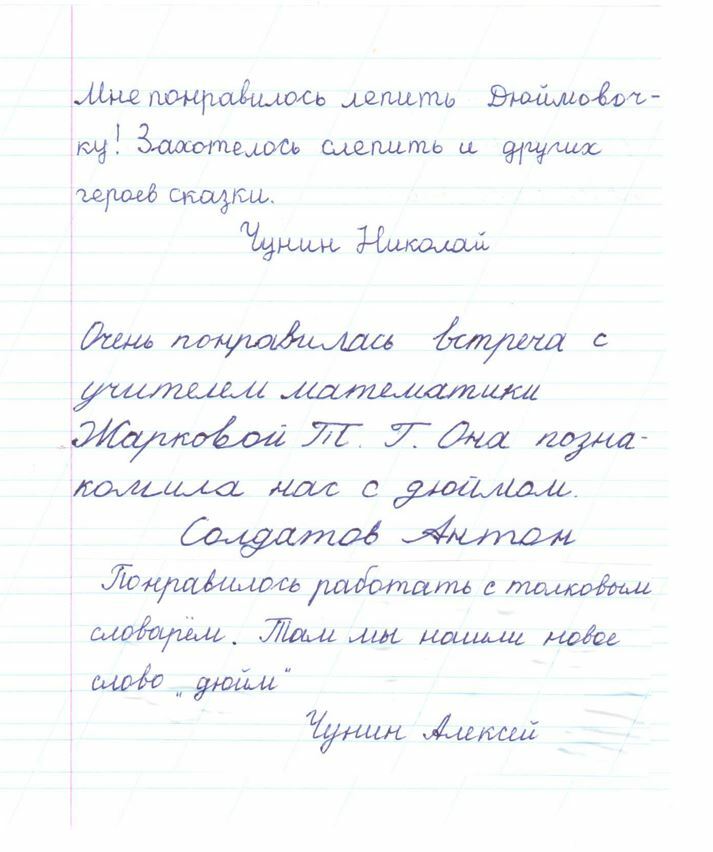 Мне понравилось лепить Дюймовоч-
ку! Захотелось слепить и других
героев сказки.
Чунин Николай
Очень понравилась встреча с
учителем математики
Жарковой Т. Г. Она позна-
комила нас с дюймом.
Солдатов Антон
Понравилось работать с толковым
словарём. Там мы нашли новое
слово „дюйм"
Чунин Алексей